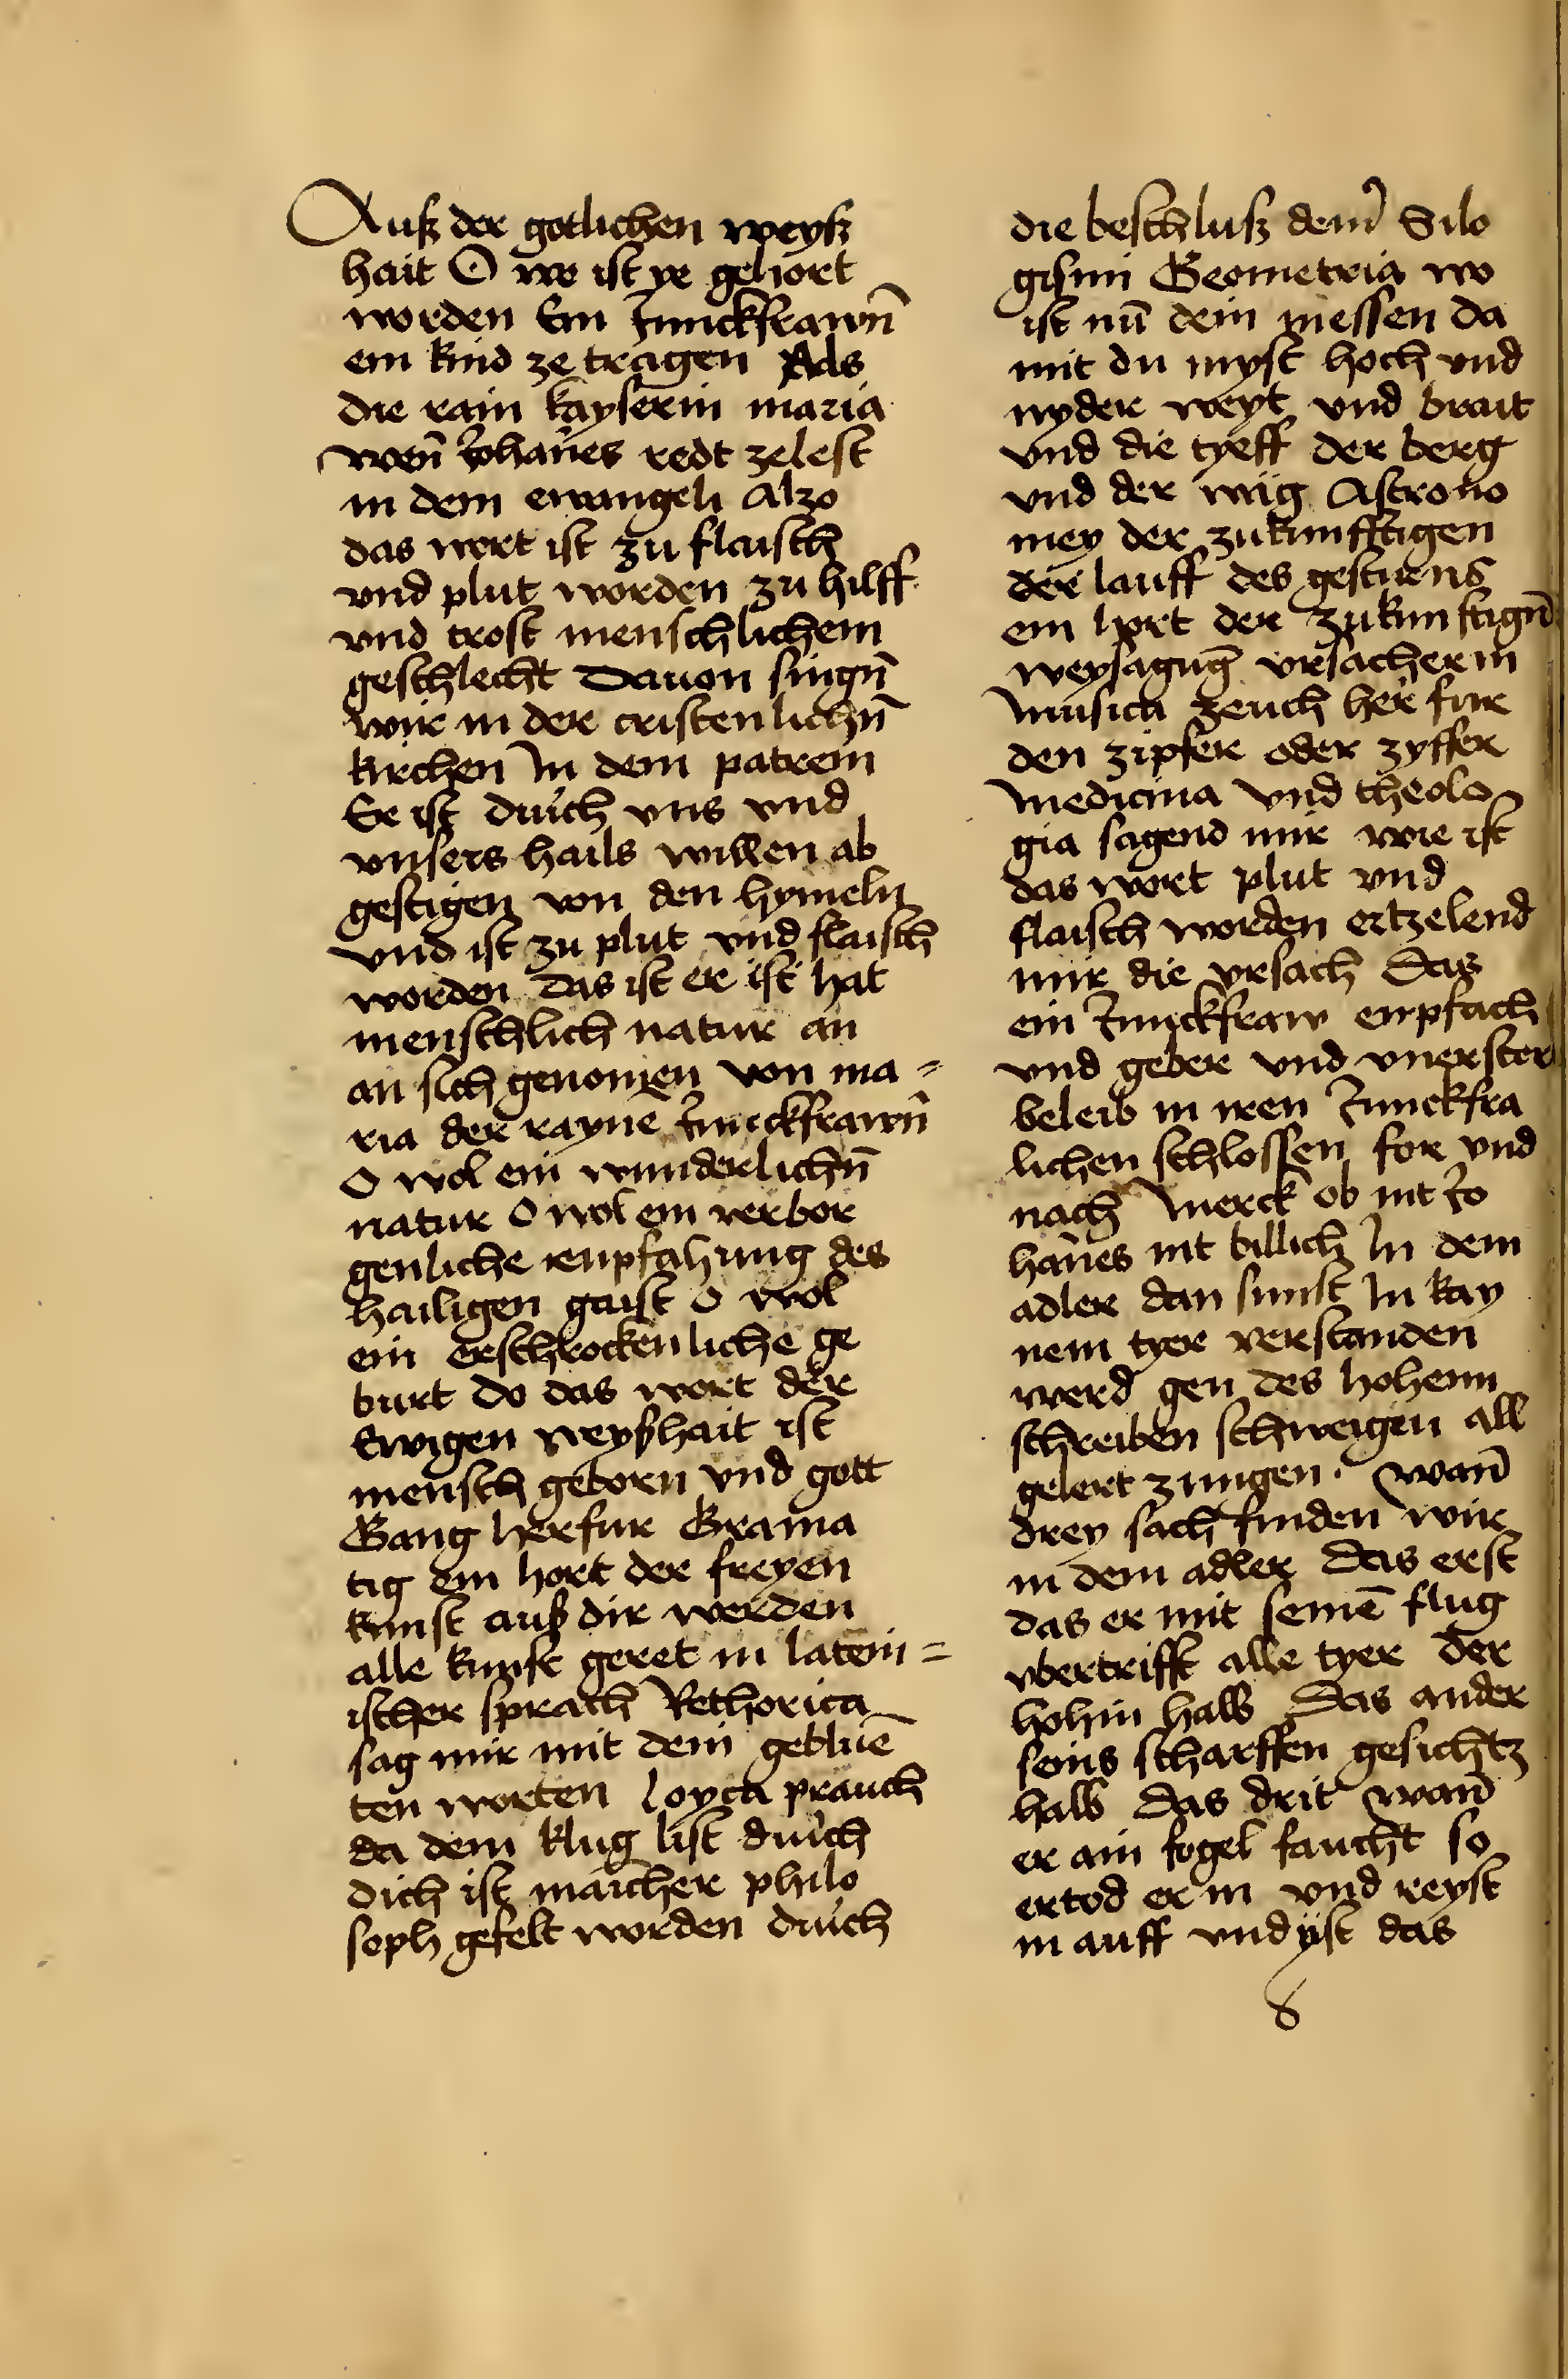 Auß der gotlichen weyß
hait O wo ist ye gehort
worden Ein Junckfrawn̄
ein kind ze tragen Als
die rain kayserin maria
wen̄ Johan̄es redt zelest
in dem ewangeli Alzo
das wort ist zu flaisch
vnd plut worden zu hilff
vnd trost menschlichem
geschlecht Dauon singn̄
wir in der cristenlichn̄
kirchen In dem patrem
Er ist durch vns vnd
vnsers hails willen ab
gestigen von den hymeln
vnd ist zu plut vnd flaisch
worden das ist er ist hat
menschlich natur an
an sich genomen von ma=
ria der rayne Junckfrawn̄
O wol ein wunderlichn̄
natur O wol ein verbor
genliche enpfahung des
hailigen gaist O wol
ein erschrockenliche ge
burt do das wort der
Ewigen weyßhait ist
mensch geborn vnd gott
Gang herfur Grama
tig ein hort der freyen
kunst auß dir werden
alle kunst geret in latein=
ischer sprach Rethorica
sag mir mit dein geblue̅
ten worten loyca prauch
da dein klug list durch
dich ist mancher philo
soph gefelt worden durch
die beschluß dein̄ Silo
gismi Geometria wo
ist nu̅ dein messen da
mit du myst hoch vnd
nyder weyt vnd brait
vnd die tyeff der berg
vnd der wig Astrono
mey der zukunfftigen
der lauff des gestirens
ein hort der zukunftign̄
weysagug̅ vrsacherin
Musica zeuch her fur
den zipfer oder zyffer
Medicina vnd theolo
gia sagend mir wie ist
das wort plut vnd
flaisch worden ertzelend
mir die vrsach Das
ein Junckfraw enpfach
vnd geber vnd vnerstor
beleib in iren Junckfra
lichen schlossen for vnd
nach Merck ob nit Jo
han̄es nit billich In dem
adler dan sunst In kay
nem tyer verstanden
werd gen des hohenn
schreiben schweigen all
gelert zungen. wan̄
drey sach finden wir
in dem adler Das erst
das er mit seine̅ flug
vbertrifft alle tyer der
hohin halb Das ander
seins scharffen gesichtz
halb Das drit wan̄
er ain fogel faucht so
ertod er in vnd reyst
in auff vnd yst das